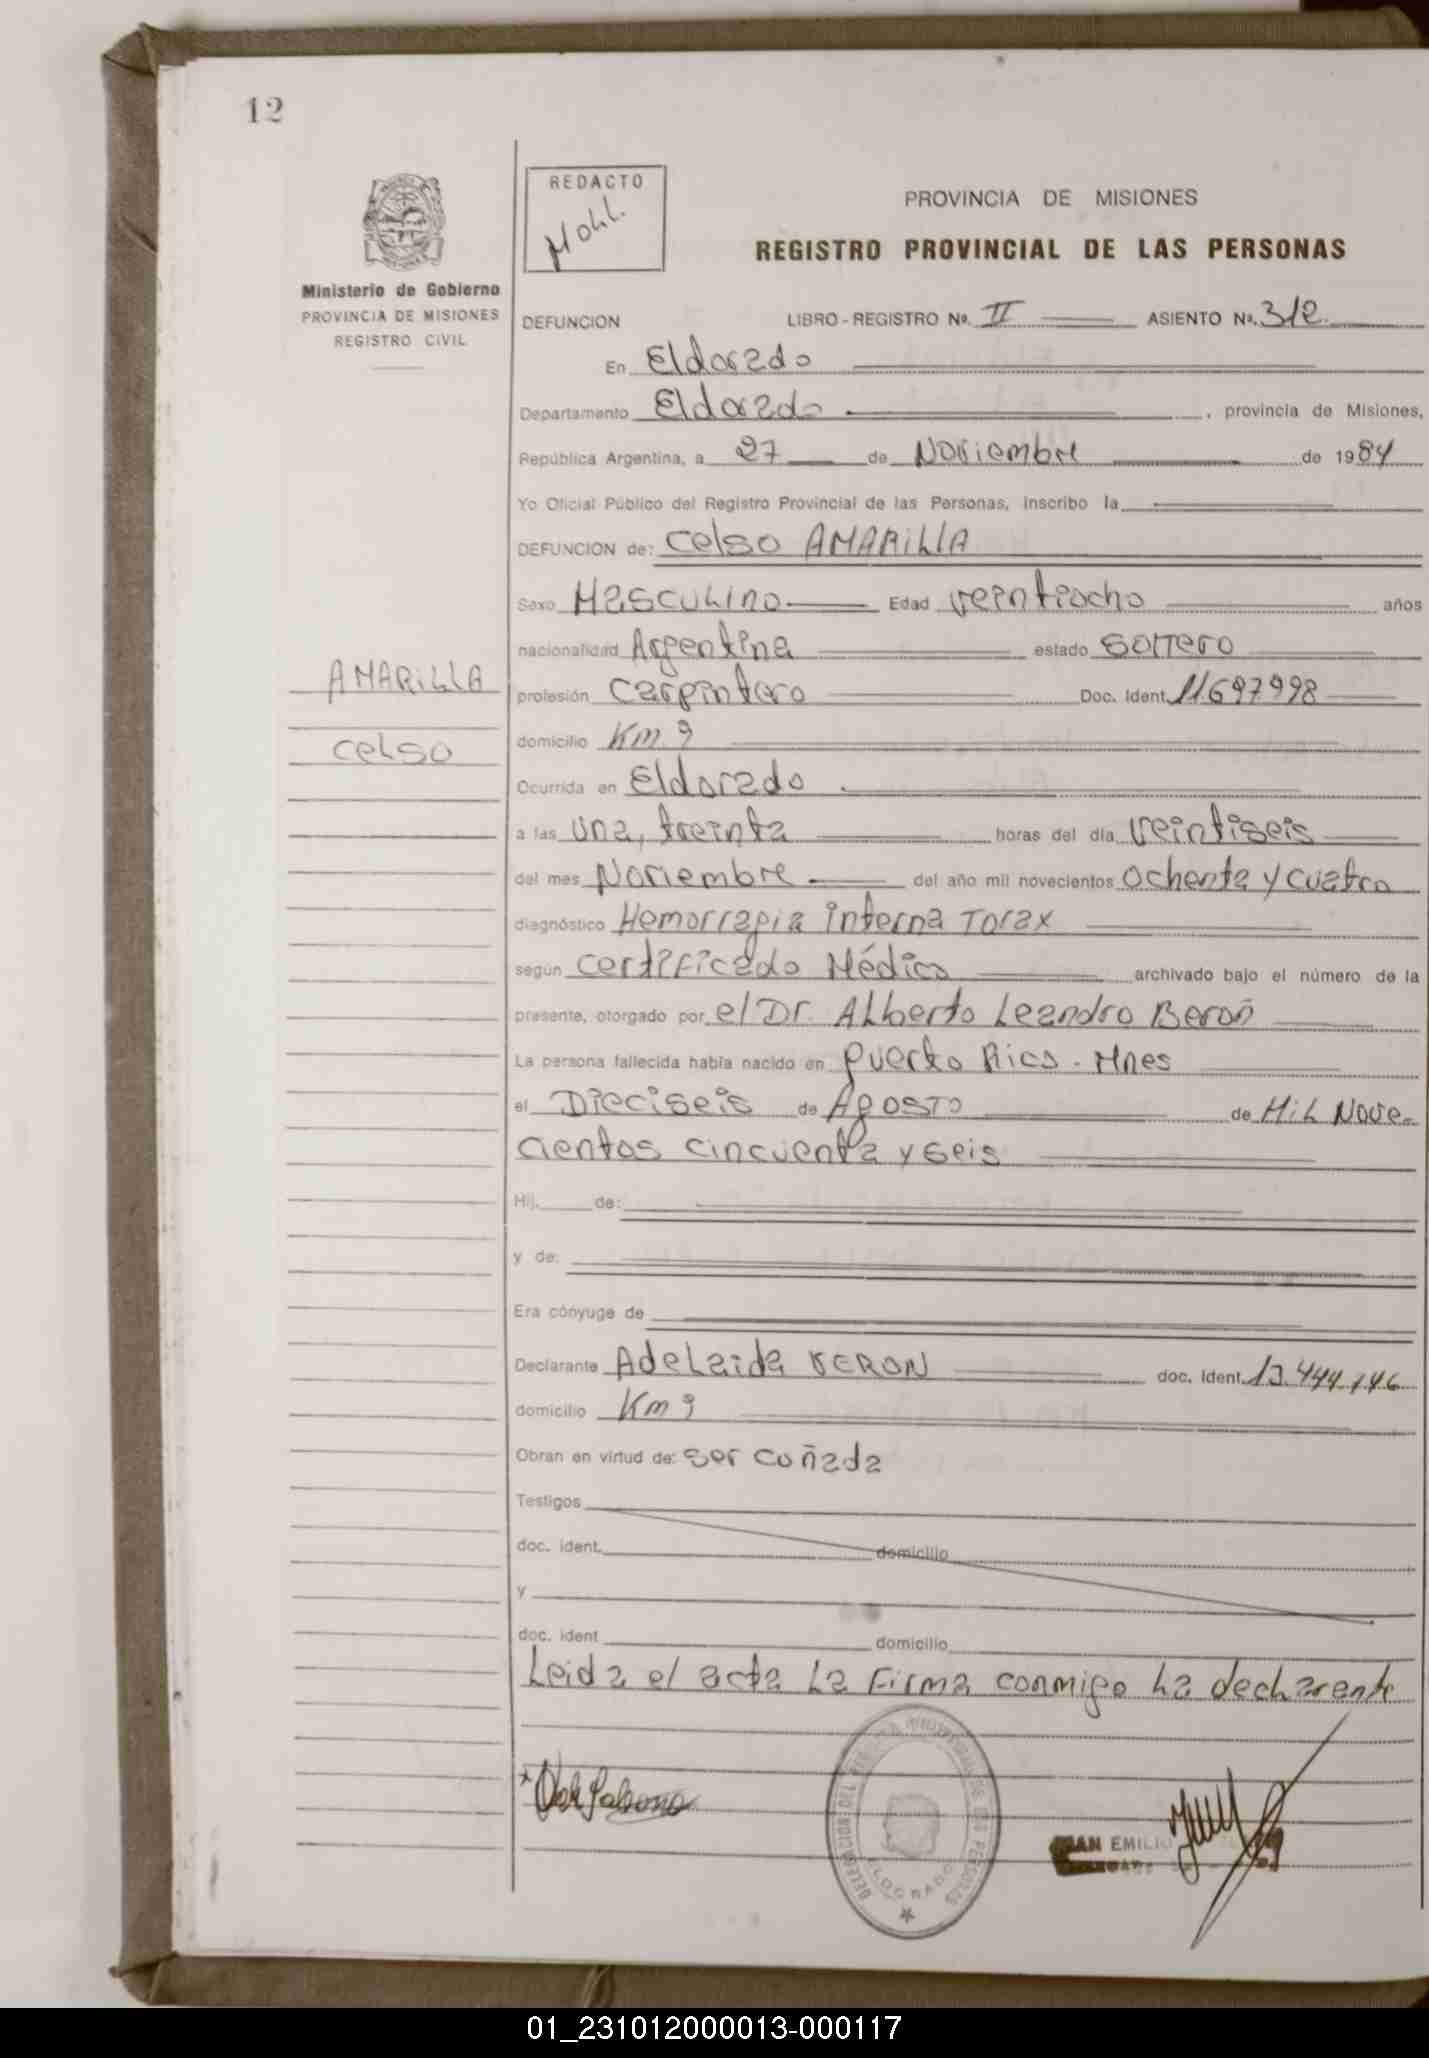 12
REDACTO
Mohl.
PROVINCIA DE MISIONES
REGISTRO PROVINCIAL DE LAS PERSONAS
Ministerio de Gobierno
PROVINCIA DE MISIONES
REGISTRO CIVIL
DEFUNCION LIBRO - REGISTRO Nº. II ASIENTO Nº. 312
En Eldorado
Departamento Eldorado, provincia de Misiones,
República Argentina, a 27 de Noviembre de 1984
Yo Oficial Público del Registro Provincial de las Personas, inscribo la
DEFUNCION de: Celso AMARILLA
Sexo Masculino Edad veintiocho años
nacionalidad Argentina estado soltero
AMARILLA
profesión Carpintero Doc. Ident. 11697998
Celso
domicilio Km 9
Ocurrida en Eldorado
a las una, treinta horas del día veintiseis
del mes Noviembre del año mil novecientos ochenta y cuatro
diagnóstico Hemorragia interna Torax
según Certificado Médico archivado bajo el número de la
presente, otorgado por el Dr. Alberto Leandro Beron
La persona fallecida había nacido en Puerto Rico - Mnes
el Dieciseis de Agosto de Mil Nove-
cientos cincuenta y seis
Hij. de:
y de:
Era cónyuge de
Declarante Adelaida VERON doc. Ident. 13.444.146
domicilio Km 9
Obran en virtud de: ser cuñada
Testigos
doc. ident. domicilio
y
doc. ident domicilio
Leida el acta La Firma conmigo La declarante
DELEGACION DEL REGISTRO PROVINCIAL DE LAS PERSONAS
ELDORADO
JUAN EMILIO
01_231012000013-000117